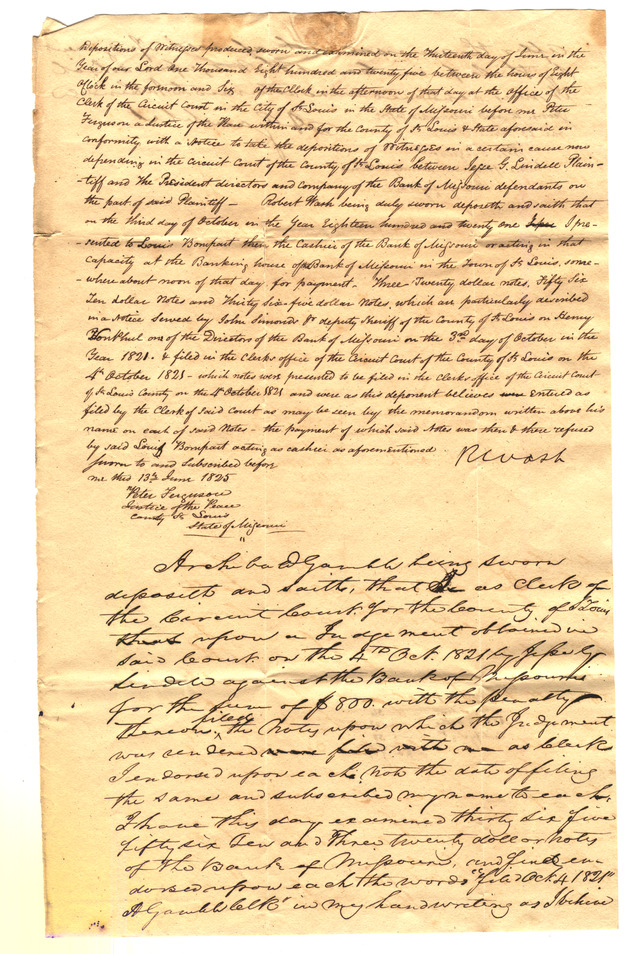 Depositions of Witnesses produced, sworn and examined on the Thirteenth day of June in the
Year of our Lord One Thousand Eight hundred and twenty five between the hour of Eight
O'Clock in the fornoon and Six of the Clock in the afternoon of that day at the Office of the
Clerk of the Circuit Court in the City of St Louis in the State of Missouri before me Peter
Ferguson a Justice of the Peace within and for the County of St Louis & State aforesaid in
conformity with a Notice to take the depositions of Witnesses in a certain cause now
depending in the Circuit Court of the County of St Louis between Jesse G. Lindell Plain-
-tiff and The President directors and company of the Bank of Missouri defendants on
the part of said Plaintiff — Robert Wash being duly sworn deposeth and saith that
on the third day of October in the Year Eighteen hundred and twenty one I pre-
-sented to Louis Bompart then the Cashier of the Bank of Missouri or acting in that
capacity at the Banking house of Bank of Missouri in the Town of St Louis, some-
-where about noon of that day for payment - Three - Twenty dollar notes, Fifty Six
Ten dollar Notes and Thirty six - five dollar Notes, which are particularly described
in a Notice served by John Simonds Jr deputy Sheriff of the County of St Louis on Henry
Vonkhul one of the Directors of the Bank of Missouri on the 3rd day of October in the
Year 1821 - & filed in the Clerks office of the Circuit Court of the County of St Louis on the
4th October 1821 - which notes were presented to be filed in the Clerks office of the Circuit Court
of St Louis County on the 4th October 1821 and were as this deponent believes Entered as
filed by the Clerk of said Court as may be seen by the memorandum written above his
name on each of said Notes - the payment of which said Notes was then & there refused
by said Louis Bompart acting as cashier as aforementioned
Sworn to and Subscribed before R Wash
me this 13th June 1825
Peter Ferguson
Justice of the Peace
County St Louis
State of Missouri
Archibald Gamble being sworn
deposeth and saith, that as Clerk of
the Circuit Court for the County of St Louis
upon a Judgement obtained in
said Court on the 4th Oct. 1821 by Jesse G
Lindell against the Bank of Missouri
for the sum of $800. with the penalty
thereon, filed the notes upon which the Judgement
was rendered were filed with me as Clerk
I endorsed upon each note the date of filing
the same and subscribed my name to each,
I have this day examined thirty six five
fifty six Ten and Three twenty dollar notes
of the Bank of Missouri, and find en-
dorsed upon each the words "filed Oct 4 1821"
A Gamble Clk" in my handwriting as I believe